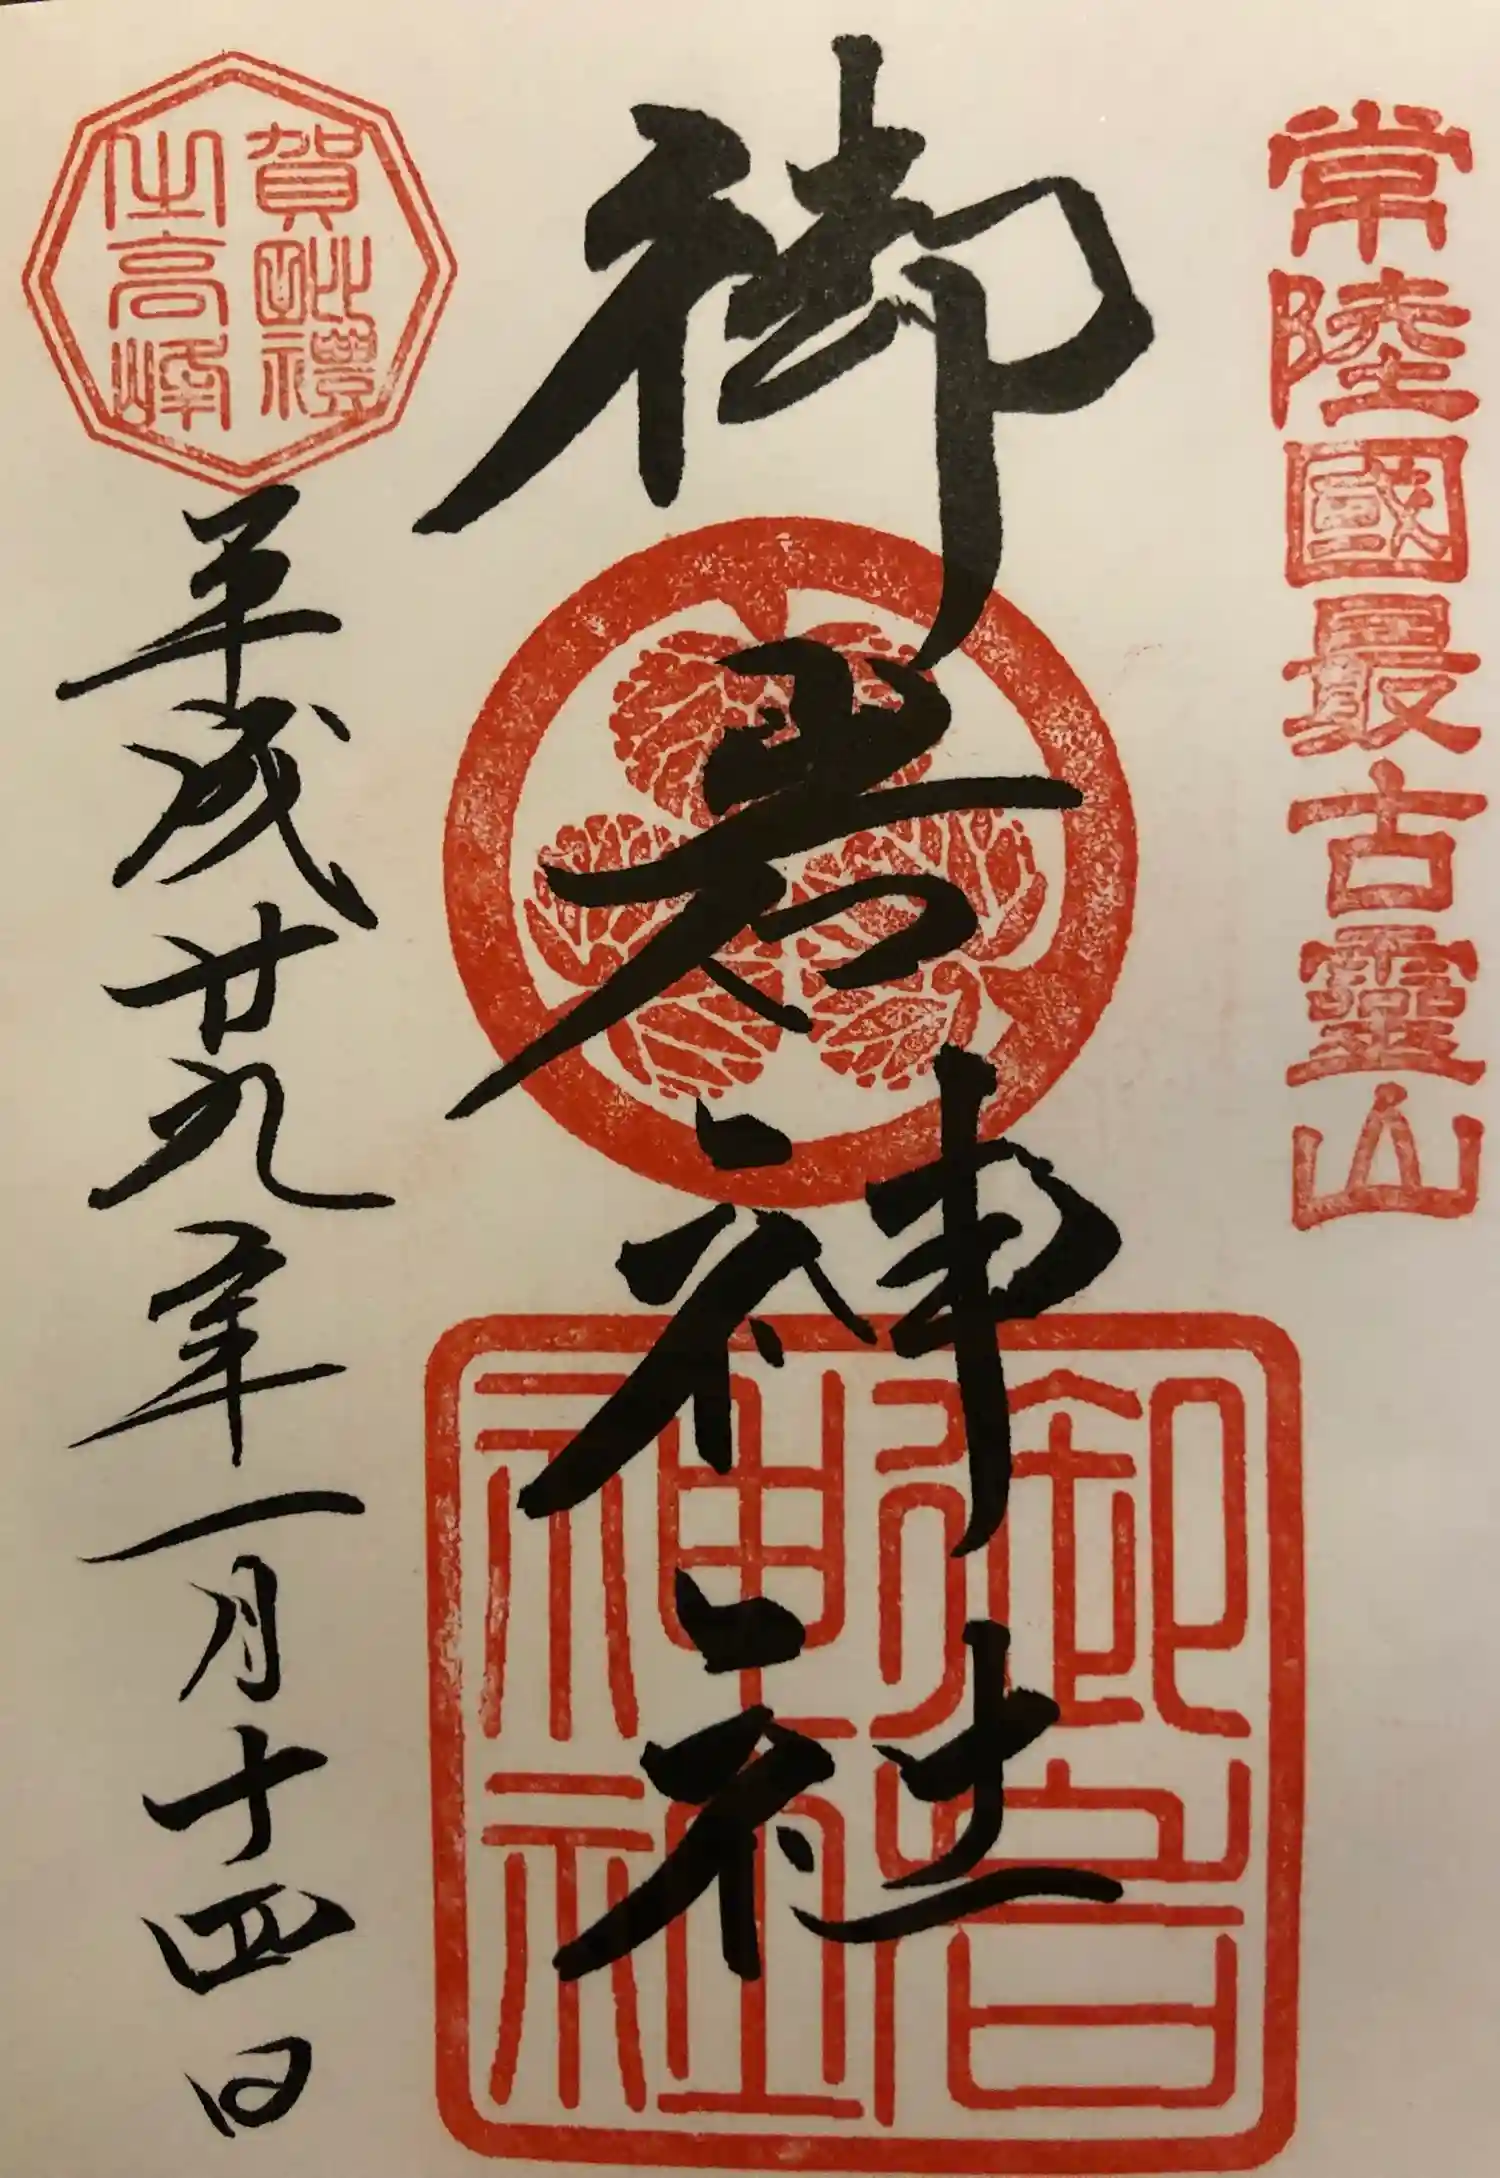 常陸國最古霊山
御岩神社
御岩神社
賀毗禮
之高峰
平成廿九年一月十四日